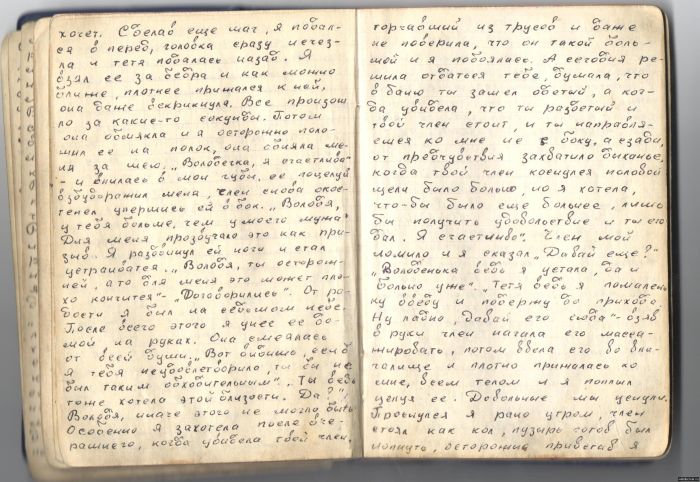 хочет. Сделав еще шаг, я подал-
ся в перед, головка сразу исчез-
ла и тетя подалась назад. Я
взял ее за бедра и как можно
ближе, плотнее прижался к ней,
она даже вскрикнула. Все произош
ло за какие-то секунды. Потом
она обмякла и я осторожно поло-
жил ее на полок, она обняла ме-
ня за шею. „Володечка, я счастлива"
- и впилась в мои губы. ее поцелуй
взбудоражил меня, член снова окос-
тенел, упершись ей в бок. „Володя,
у тебя больше, чем у моего мужа"
Для меня прозвучало это как при-
зыв. Я раздвинул ей ноги и стал
устраиваться. „Володя, ты осторож-
ней, а то для меня это может пло-
хо кончится" - „Договорились". От ра-
дости я был на седьмом небе.
После всего этого я унес ее до-
мой на руках. Она смеялась
от всей души. „Вот видишь, если б
я тебя не
был таким обходительным". „Ты ведь
тоже хотела этой близости. Да?"
Володя, иначе этого не могло быть
Особенно я захотела после вче-
рашнего, когда увидела твой член,
торчавший из трусов и даже
не поверила, что он такой боль-
шой и я побоялась. А сегодня ре-
шила отдаться тебе, думала, что
в баню ты зашел одетый, а ког-
да увидела, что ты раздетый и
твой член стоит, и ты направля-
ешся ко мне не с боку, а сзади,
от предчувствия захватило дыханье,
когда твой член коснулся половой
щели было больно, но я хотела,
что-бы было еще больнее, лишь
бы получить удовольствие и ты его
дал. Я счастлива". Член мой
ломило и я сказал „Давай еще?"
„Володенька ведь я устала, да и
больно уже". „Тетя ведь я помален-
ку введу и подержу до прихода.
Ну ладно, давай его сюда" - взяв
в руки член начала его масса-
жировать, потом ввела его во вла-
галище и плотно прижалась ко
мне, всем телом и я поплыл
целуя ее. Довольные мы уснули.
Проснулся я рано утром, член
стоял как кол, пузырь готов был
лопнуть, осторожно привстав я